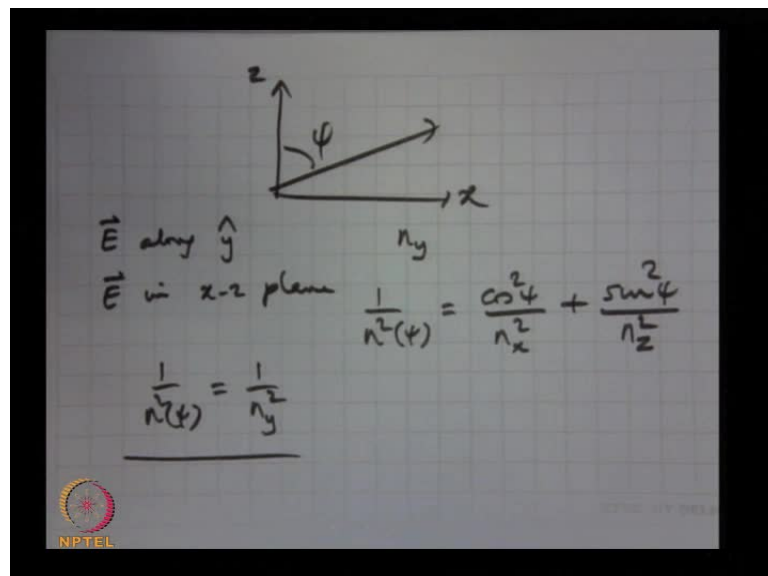 z
ψ
x
E⃗ along ŷ n_y
E⃗ in x-z plane 1/n²(ψ) = cos²ψ/n_x² + sin²ψ/n_z²
1/n²(ψ) = 1/n_y²
NPTEL